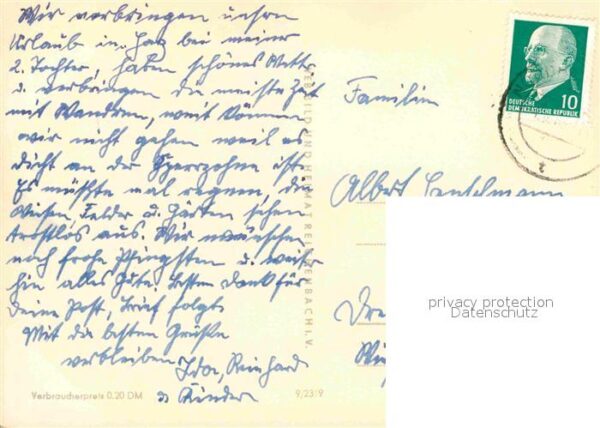 Wir verbringen unsern
Urlaub im Harz bei meiner
2. Tochter, haben schönes Wetter
u. verbringen die meiste Zeit
mit Wandern, weit können
wir nicht gehen weil es
dicht an der Sperrzohne ist.
Es müßte mal regnen, die
Wiesen, Felder u. Gärten sehen
trostlos aus. Wir wünschen
noch frohe Pfingsten u. weiter
hin alles Gute. Besten Dank für
Deine Post, Brief folgt.
Mit die besten Grüße
verbleiben Ida, Reinhard
u Kinder
Verbraucherpreis 0.20 DM
9/2319
REICHENBACH I. V.
Familie
Albert
Dre
DEUTSCHE
DEMOKRATISCHE REPUBLIK
10
privacy protection
Datenschutz